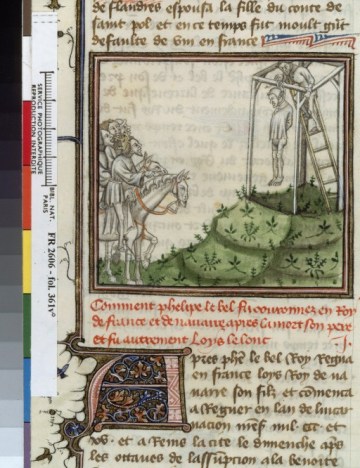 de flandres espousa la fille du conte de
saint pol et en ce temps fut moult grāt
defaulte de vin en france
SERVICE PHOTOGRAPHIQUE
REPRODUCTION INTERDITE
BIBL. NAT.
PARIS
FR 2606 - fol. 361v°
Comment phelipe le bel fu couronnez en Roy
de france et de nauarre apres la mort son pere
et fu autrement Loys le
Apres phe le bel Roy Regna
en france loys Roy de na
uarre son filz et comenca
a Regner en lan de lincar
nacion
et a Reins la cite le dimenche apꝫs
les octaues de lassuption a la benoite